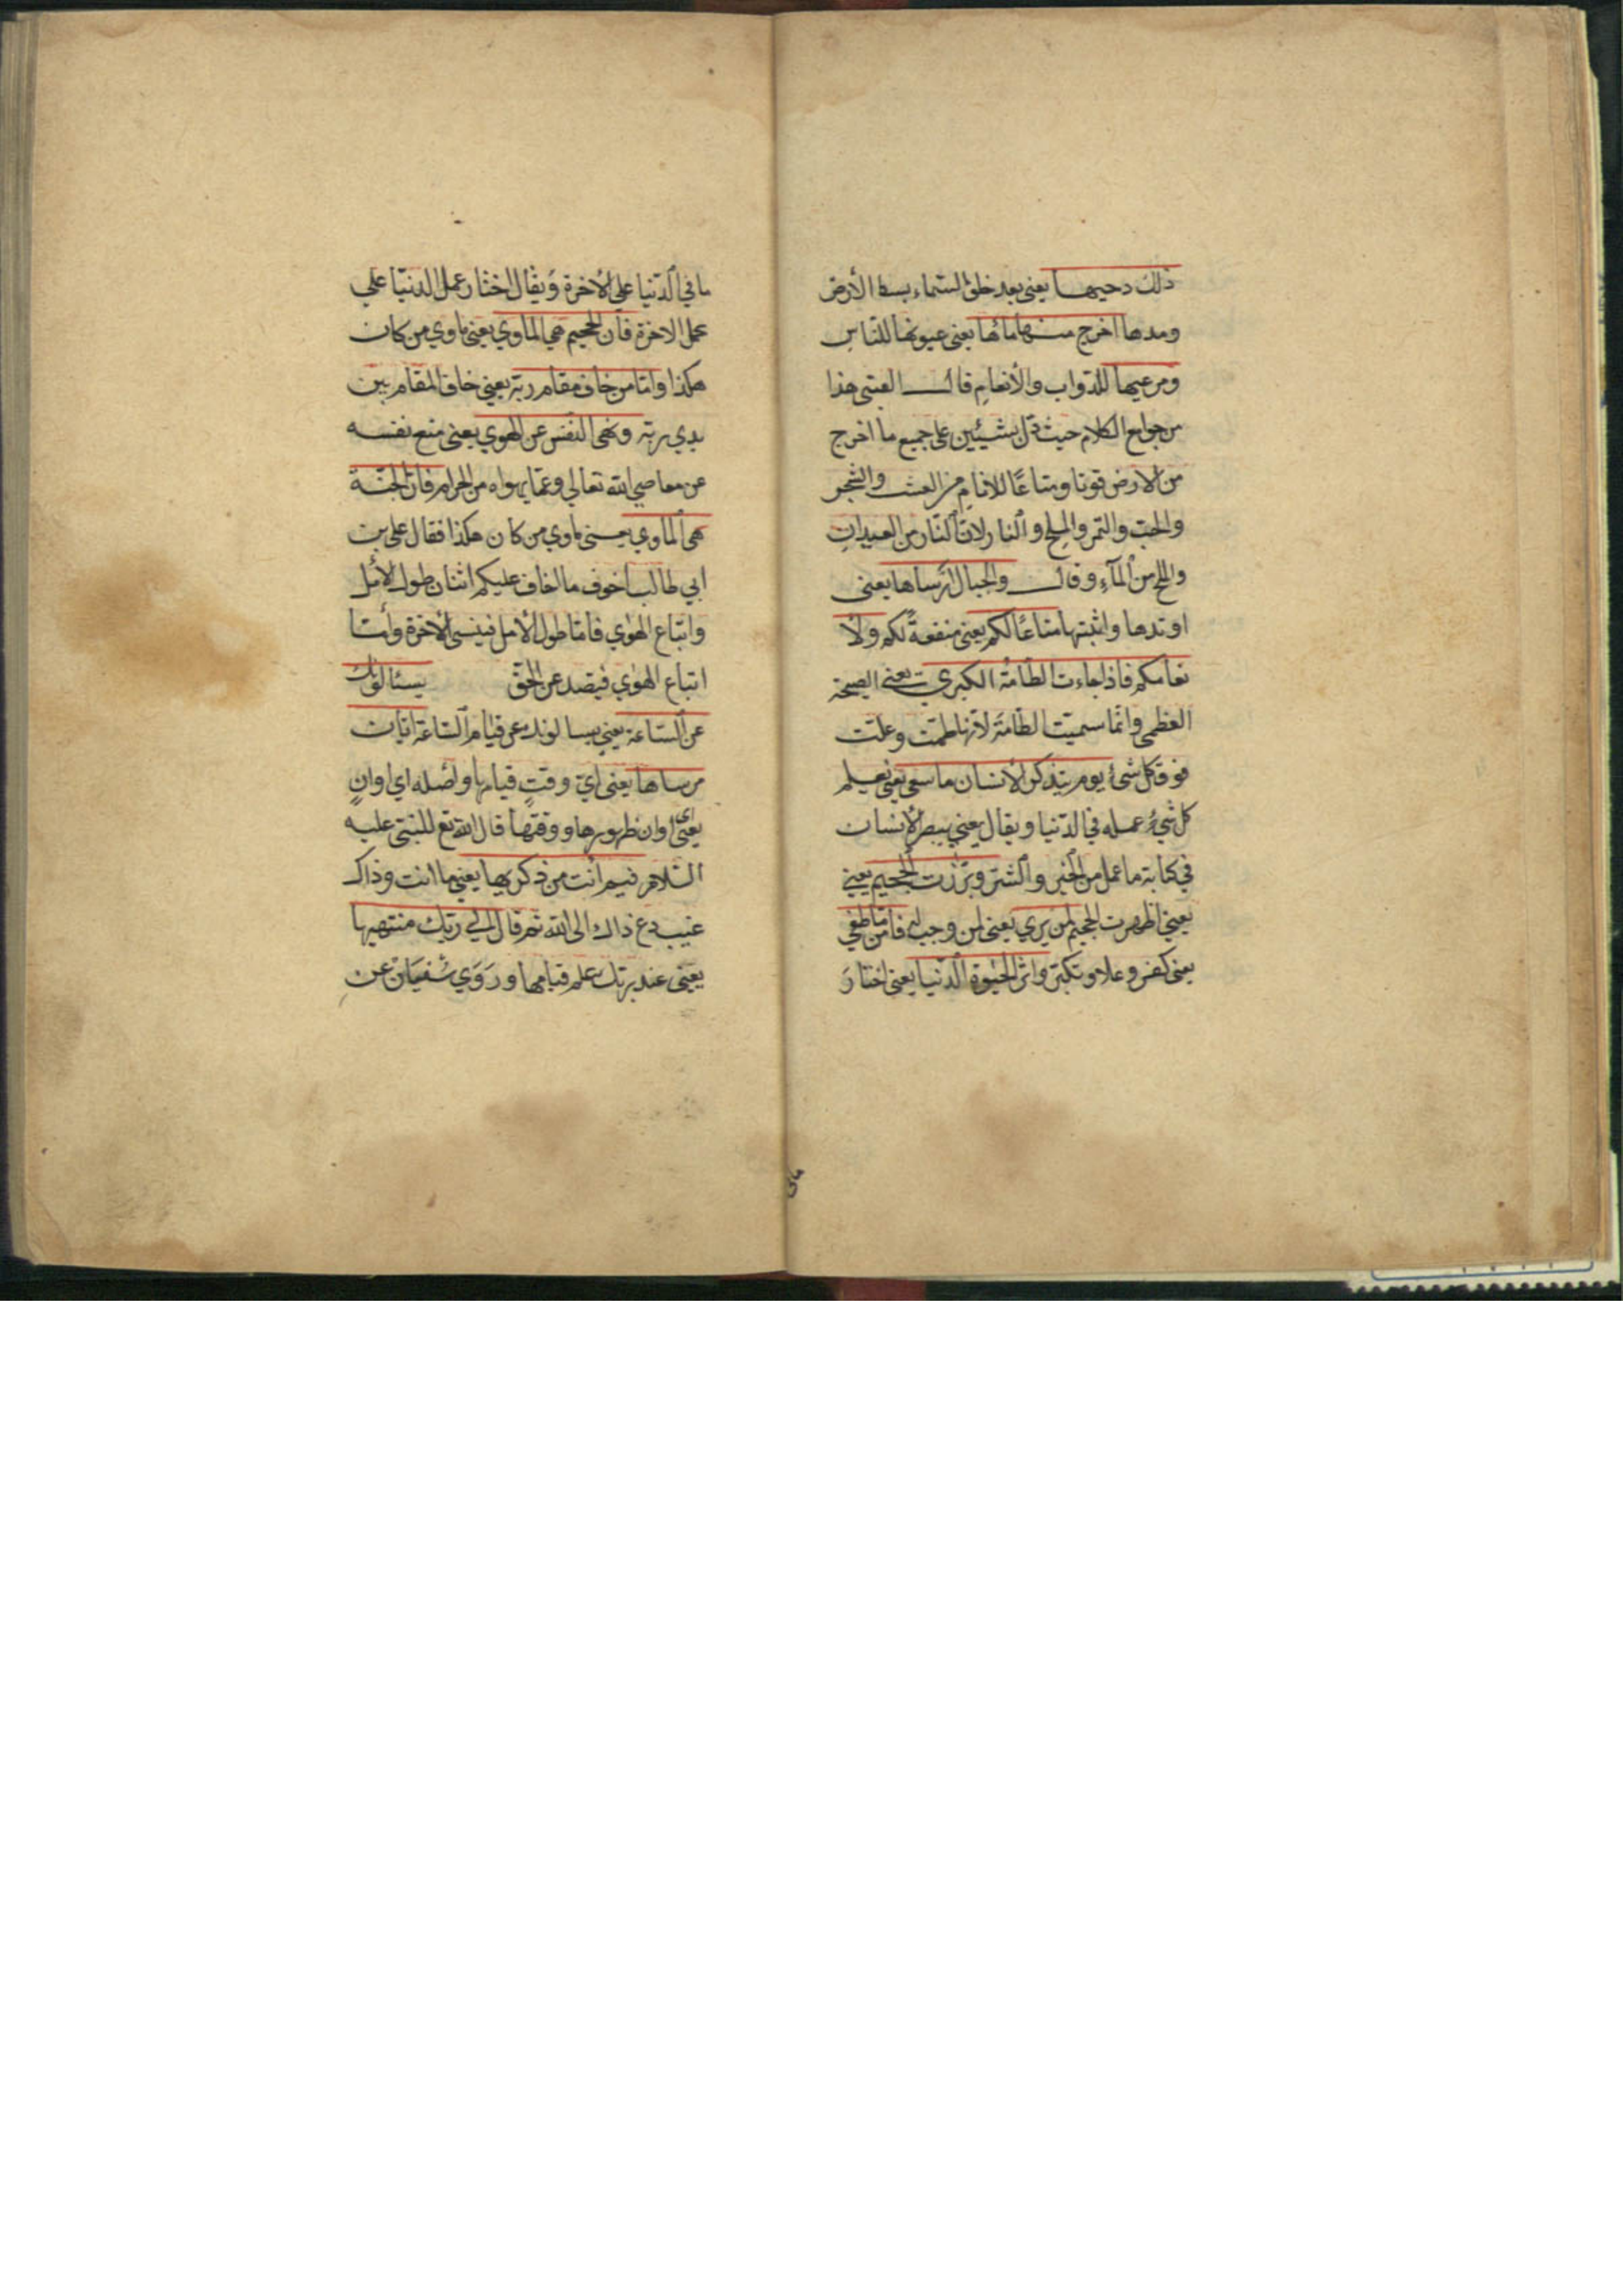 ذلك دحيها يعني بعد خلق السماء بسط الأرض
ومدها اخرج منها مائها يعني عيونها للناس
ومرعيها للدواب والأنعام قال القتبى هذا
من جوامع الكلام حيث دل بشيئين على جميع ما اخرج
من الارض قوتا ومتاعًا للانام من العشب والشجر
والحب والتمر والملح والنار لان النار من العيدان
والملح من المآء وقال والجبال ارساها يعنى
اوتدها واثبتها متاعًا لكم يعنى منفعةً لكم ولأ
نعامكم فاذا جاءت الطامة الكبري يعنى الصيحة
العظمى وانما سميت الطامة لأنها طمت وعلت
فوق كل شئ يوم يتذكر الأنسان ما سعى يعنى يعلم
كل شيء عمله في الدنيا ويقال يعني يبصر الأنسان
في كتابة ما عمل من الخير والشر وبرزت الجحيم يعني
يعني اظهرت الجحيم لمن يري يعنى لمن وجب له فامّا من طغي
يعنى كفر وعلا وتكبر واثر الحيوة الدنيا يعنى اختار
مافي
ما في الدنيا على الأخرة ويقال اختار عمل الدنيا علي
عمل الاخرة فأن الجحيم هي المأوي يعنى ماوي من كان
هكذا وامّا من خاف مقام ربه يعني خاف المقام بين
يدي ربّه ونهى النفس عن الهوي يعنى منع نفسه
عن معاصي الله تعالي وعمّا يهواه من الحرام فان الجنّة
هي المأوي يعنى ماوي من كان هكذا فقال علي بن
ابي طالب اخوف ما اخاف عليكم اثنان طول الأمل
واتباع الهوي فامّا طول الأمل فينسى الأخرة وأمّا
اتباع الهوي فيصد عن الحق يسئالونك
عن الساعة يعني يسالونك عن قيام الساعة ايان
مرساها يعنى اي وقتٍ قيامها واصله اي اوانٍ
يعنى اوان ظهورها ووقتها قال الله تع للنبى عليه
السلام فيم أنت من ذكريها يعني ما انت وذاك
دع ذاك الى الله ثم قال الي ربك منتهيها
يعنى عند ربّك علم قيامها وروي سفيان عن